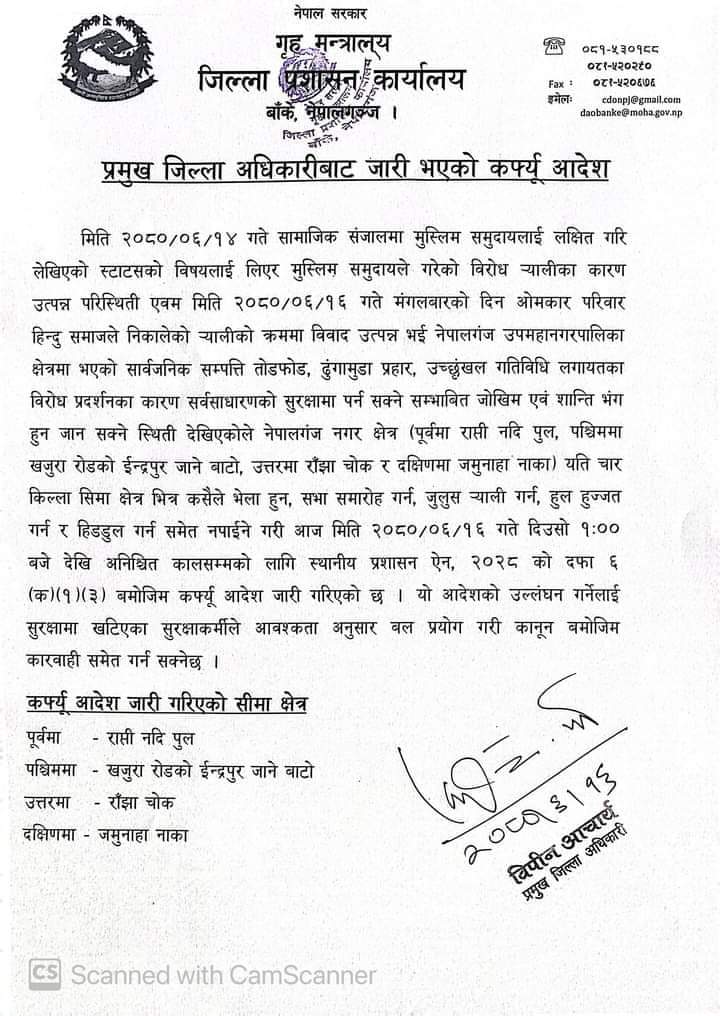 नेपाल सरकार
गृह मन्त्रालय
जिल्ला प्रशासन कार्यालय
बाँके, नेपालगञ्ज ।
०८१-५३०१८८
०८१-५२०२८०
Fax : ०८१-५२०६७६
इमेलः cdonpj@gmail.com
daobanke@moha.gov.np
प्रमुख जिल्ला अधिकारीबाट जारी भएको कर्फ्यू आदेश
मिति २०८०/०६/१४ गते सामाजिक संजालमा मुस्लिम समुदायलाई लक्षित गरि
लेखिएको स्टाटसको विषयलाई लिएर मुस्लिम समुदायले गरेको विरोध र्‍यालीका कारण
उत्पन्न परिस्थिती एवम मिति २०८०/०६/१६ गते मंगलबारको दिन ओमकार परिवार
हिन्दु समाजले निकालेको र्‍यालीको क्रममा विवाद उत्पन्न भई नेपालगंज उपमहानगरपालिका
क्षेत्रमा भएको सार्वजनिक सम्पत्ति तोडफोड, ढुंगामुडा प्रहार, उच्छृंखल गतिविधि लगायतका
विरोध प्रदर्शनका कारण सर्वसाधारणको सुरक्षामा पर्न सक्ने सम्भावित जोखिम एवं शान्ति भंग
हुन जान सक्ने स्थिती देखिएकोले नेपालगंज नगर क्षेत्र (पूर्वमा राप्ती नदि पुल, पश्चिममा
खजुरा रोडको ईन्द्रपुर जाने बाटो, उत्तरमा राँझा चोक र दक्षिणमा जमुनाहा नाका) यति चार
किल्ला सिमा क्षेत्र भित्र कसैले भेला हुन, सभा समारोह गर्न, जुलुस र्‍याली गर्न, हुल हुज्जत
गर्न र हिडडुल गर्न समेत नपाईने गरी आज मिति २०८०/०६/१६ गते दिउसो १:००
बजे देखि अनिश्चित कालसम्मको लागि स्थानीय प्रशासन ऐन, २०२८ को दफा ६
(क)(१)(३) बमोजिम कर्फ्यू आदेश जारी गरिएको छ । यो आदेशको उल्लंघन गर्नेलाई
सुरक्षामा खटिएका सुरक्षाकर्मीले आवश्कता अनुसार वल प्रयोग गरी कानून बमोजिम
कारवाही समेत गर्न सक्नेछ ।
कर्फ्यू आदेश जारी गरिएको सीमा क्षेत्र
पूर्वमा - राप्ती नदि पुल
पश्चिममा - खजुरा रोडको ईन्द्रपुर जाने बाटो
उत्तरमा - राँझा चोक
दक्षिणमा - जमुनाहा नाका
विपीन आचार्य
प्रमुख जिल्ला अधिकारी
CS Scanned with CamScanner